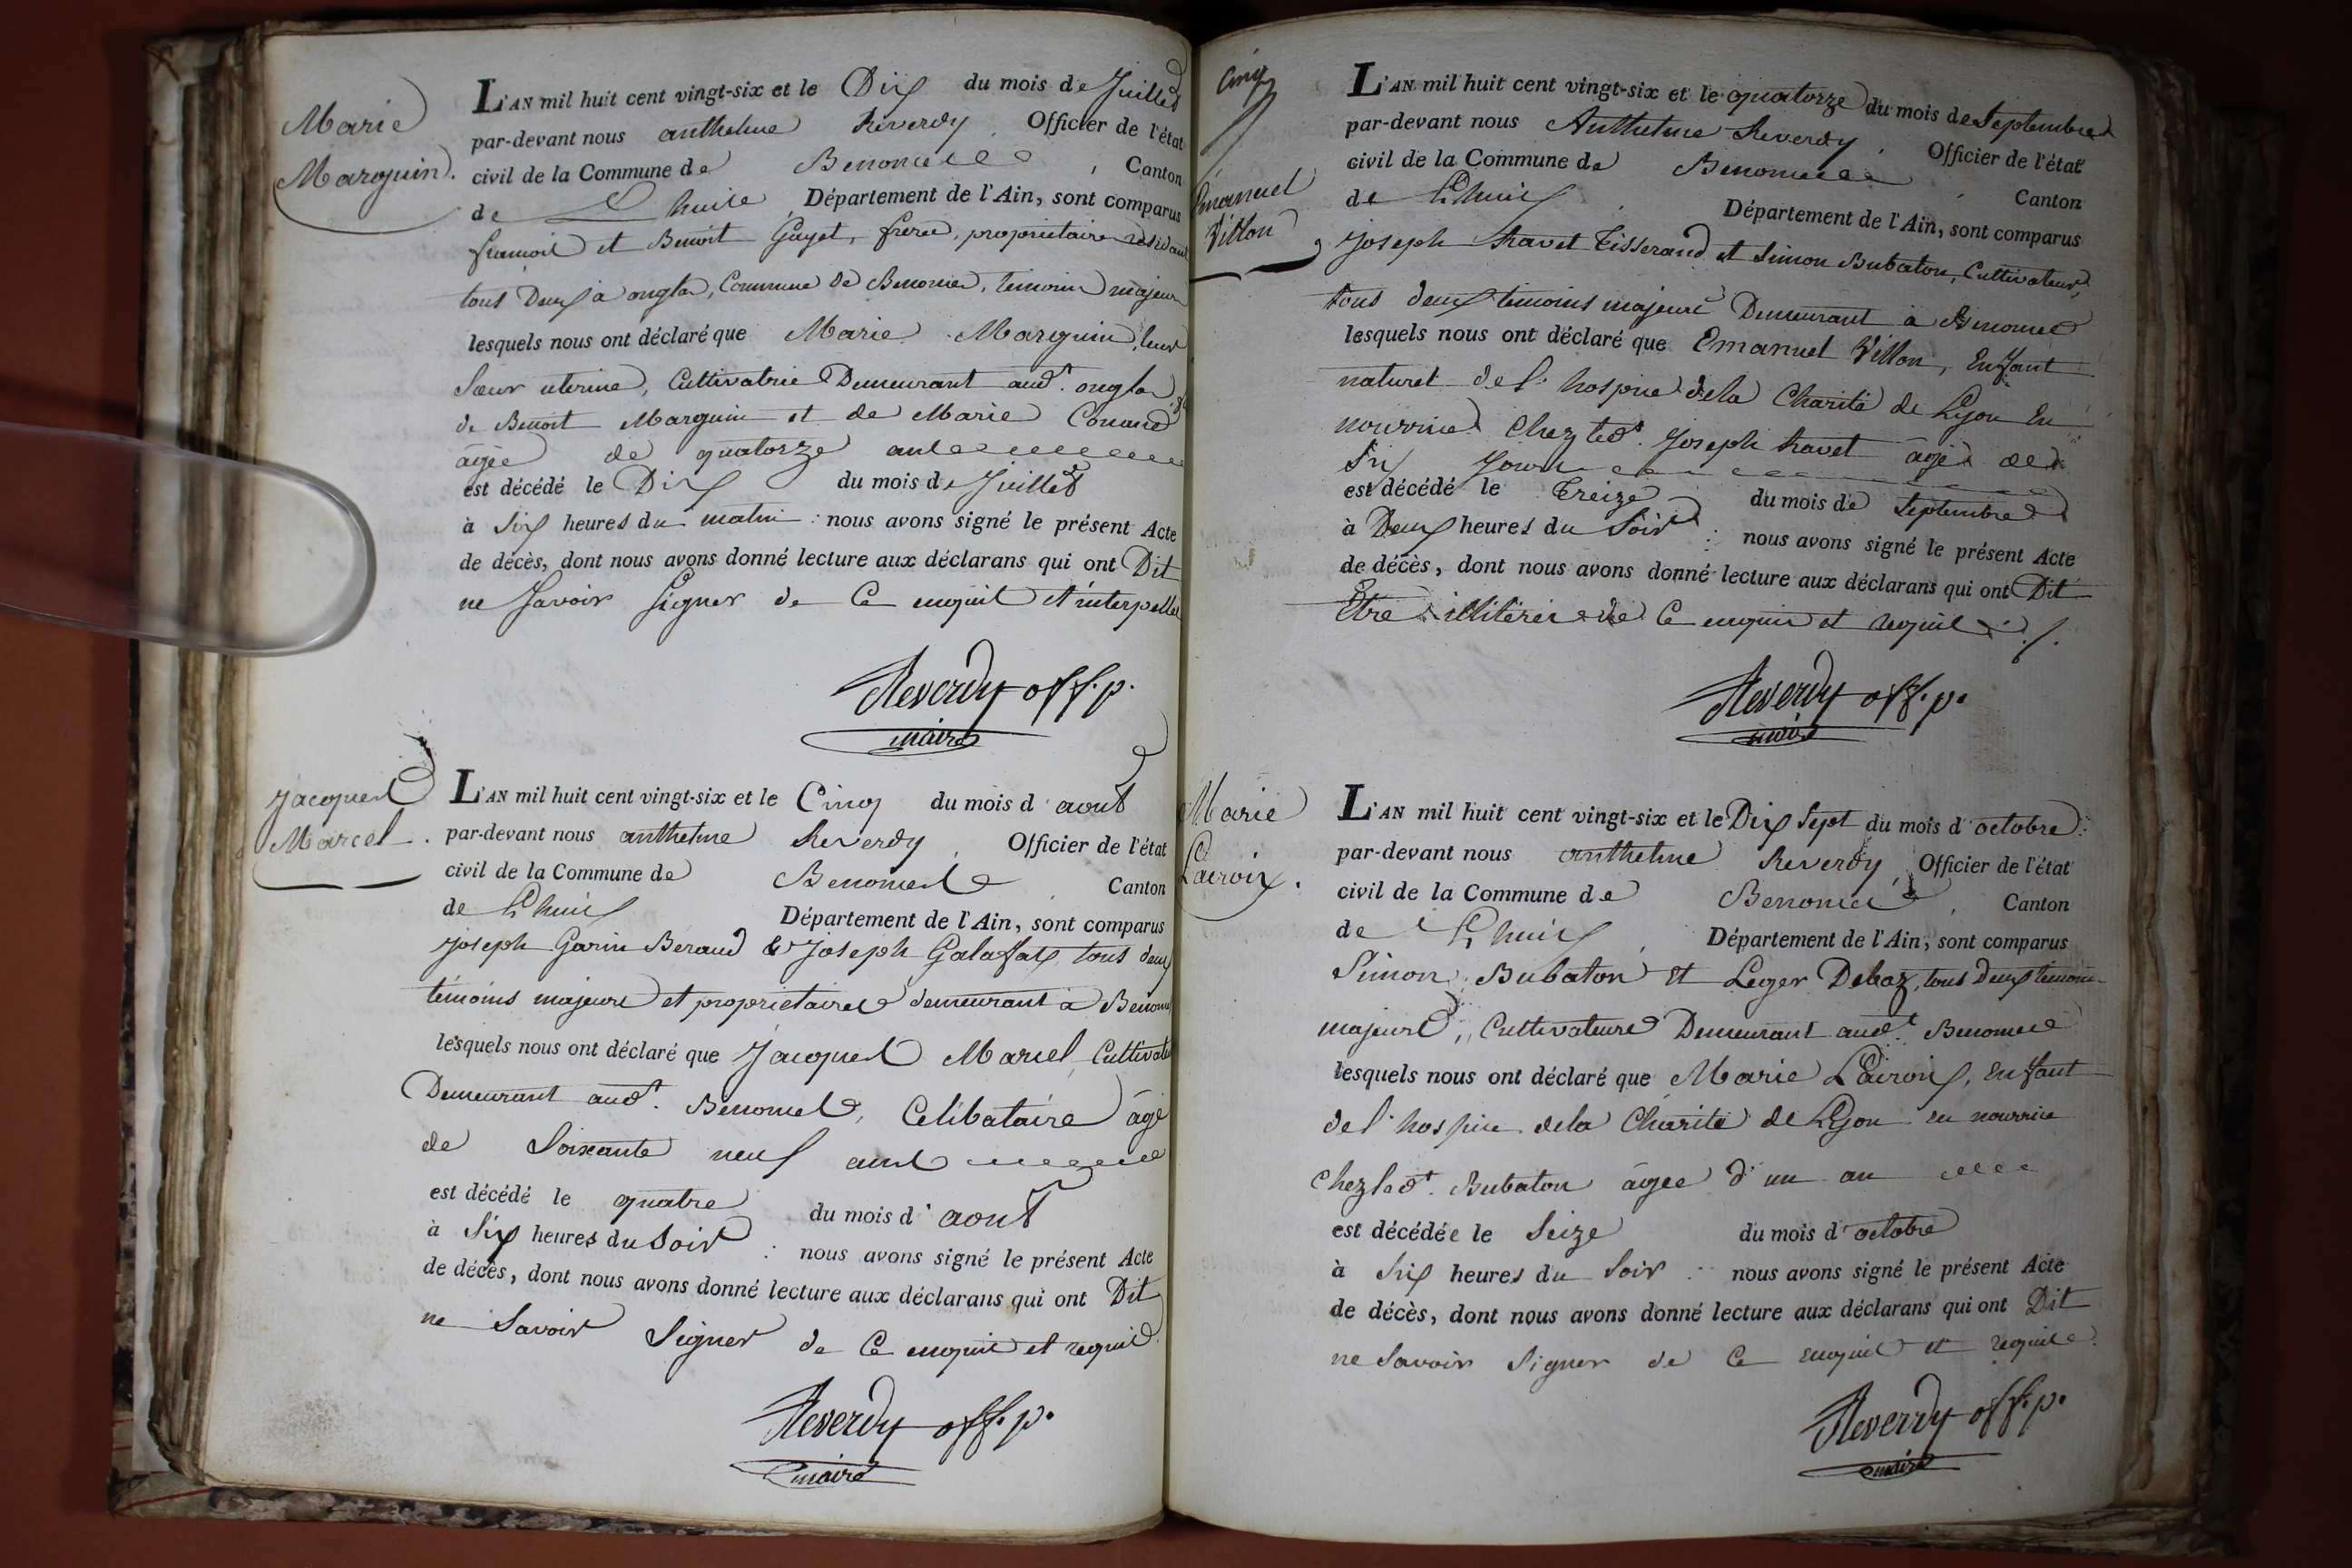 Marie
Marguin.
L'AN mil huit cent vingt-six et le Dix du mois de Juillet
par-devant nous anthelme Reverdy, Officier de l'état
civil de la Commune de Benonces, Canton
de Lhuis, Département de l'Ain, sont comparus
francois et Benoit Guyet, freres, proprietaires residant
tous Deux à onglas, Commune de Benonces, temoins majeurs
lesquels nous ont déclaré que Marie Marguin, leur
Sœur uterine, Cultivatrice Demeurant aud.t onglas,
de Benoit Marguin et de Marie
âgée de quatorze ans
est décédé le Dix du mois de Juillet
à Six heures du matin : nous avons signé le présent Acte
de décès, dont nous avons donné lecture aux déclarans qui ont Dit
ne Savoir Signer de Ce enquis et interpellés
Reverdy off. p.
maire
Jacques
Marcel.
L'AN mil huit cent vingt-six et le Cinq du mois d'aout
par-devant nous anthelme Reverdy, Officier de l'état
civil de la Commune de Benonces, Canton
de Lhuis Département de l'Ain, sont comparus
Joseph Garin Beraud & Joseph Galafax tous deux
témoins majeurs et proprietaires demeurant à Benonces
lesquels nous ont déclaré que Jacques Marcel, Cultivateur
Demeurant aud.t Benonces, Célibataire âgé
de Soixante neuf ans
est décédé le quatre du mois d'aout
à Six heures du Soir : nous avons signé le présent Acte
de décès, dont nous avons donné lecture aux déclarans qui ont Dit
ne Savoir Signer de Ce enquis et requis.
Reverdy off. p.
maire
Cinq
Emanuel
Villon
L'AN mil huit cent vingt-six et le quatorze du mois de Septembre
par-devant nous Anthelme Reverdy, Officier de l'état
civil de la Commune de Benonces, Canton
de Lhuis, Département de l'Ain, sont comparus
Joseph travet Tisserand et Simon Bubaton, Cultivateur,
tous deux témoins majeurs Demeurant à Benonces
lesquels nous ont déclaré que Emanuel Villon, Enfant
naturel de l'hospice de la Charité de Lyon En
nourrice Chez led.t Joseph travet âgé de
Six Jours
est décédé le Treize du mois de Septembre
à Deux heures du Soir : nous avons signé le présent Acte
de décès, dont nous avons donné lecture aux déclarans qui ont Dit
Etre illitérés de Ce enquis et requis ./.
Reverdy off. p.
maire
Marie
Lacroix.
L'AN mil huit cent vingt-six et le Dix Sept du mois d'octobre
par-devant nous anthelme Reverdy, Officier de l'état
civil de la Commune de Benonces, Canton
de Lhuis, Département de l'Ain, sont comparus
Simon Bubaton et Leger Debaz, tous Deux témoins
majeurs, Cultivateurs Demeurant aud.t Benonces
lesquels nous ont déclaré que Marie Lacroix, Enfant
de l'hospice de la Charité de Lyon en nourrice
Chez led.t Bubaton âgée d'un an
est décédée le Seize du mois d'octobre
à Six heures du Soir : nous avons signé le présent Acte
de décès, dont nous avons donné lecture aux déclarans qui ont Dit
ne Savoir Signer de Ce enquis et requis.
Reverdy off. p.
maire